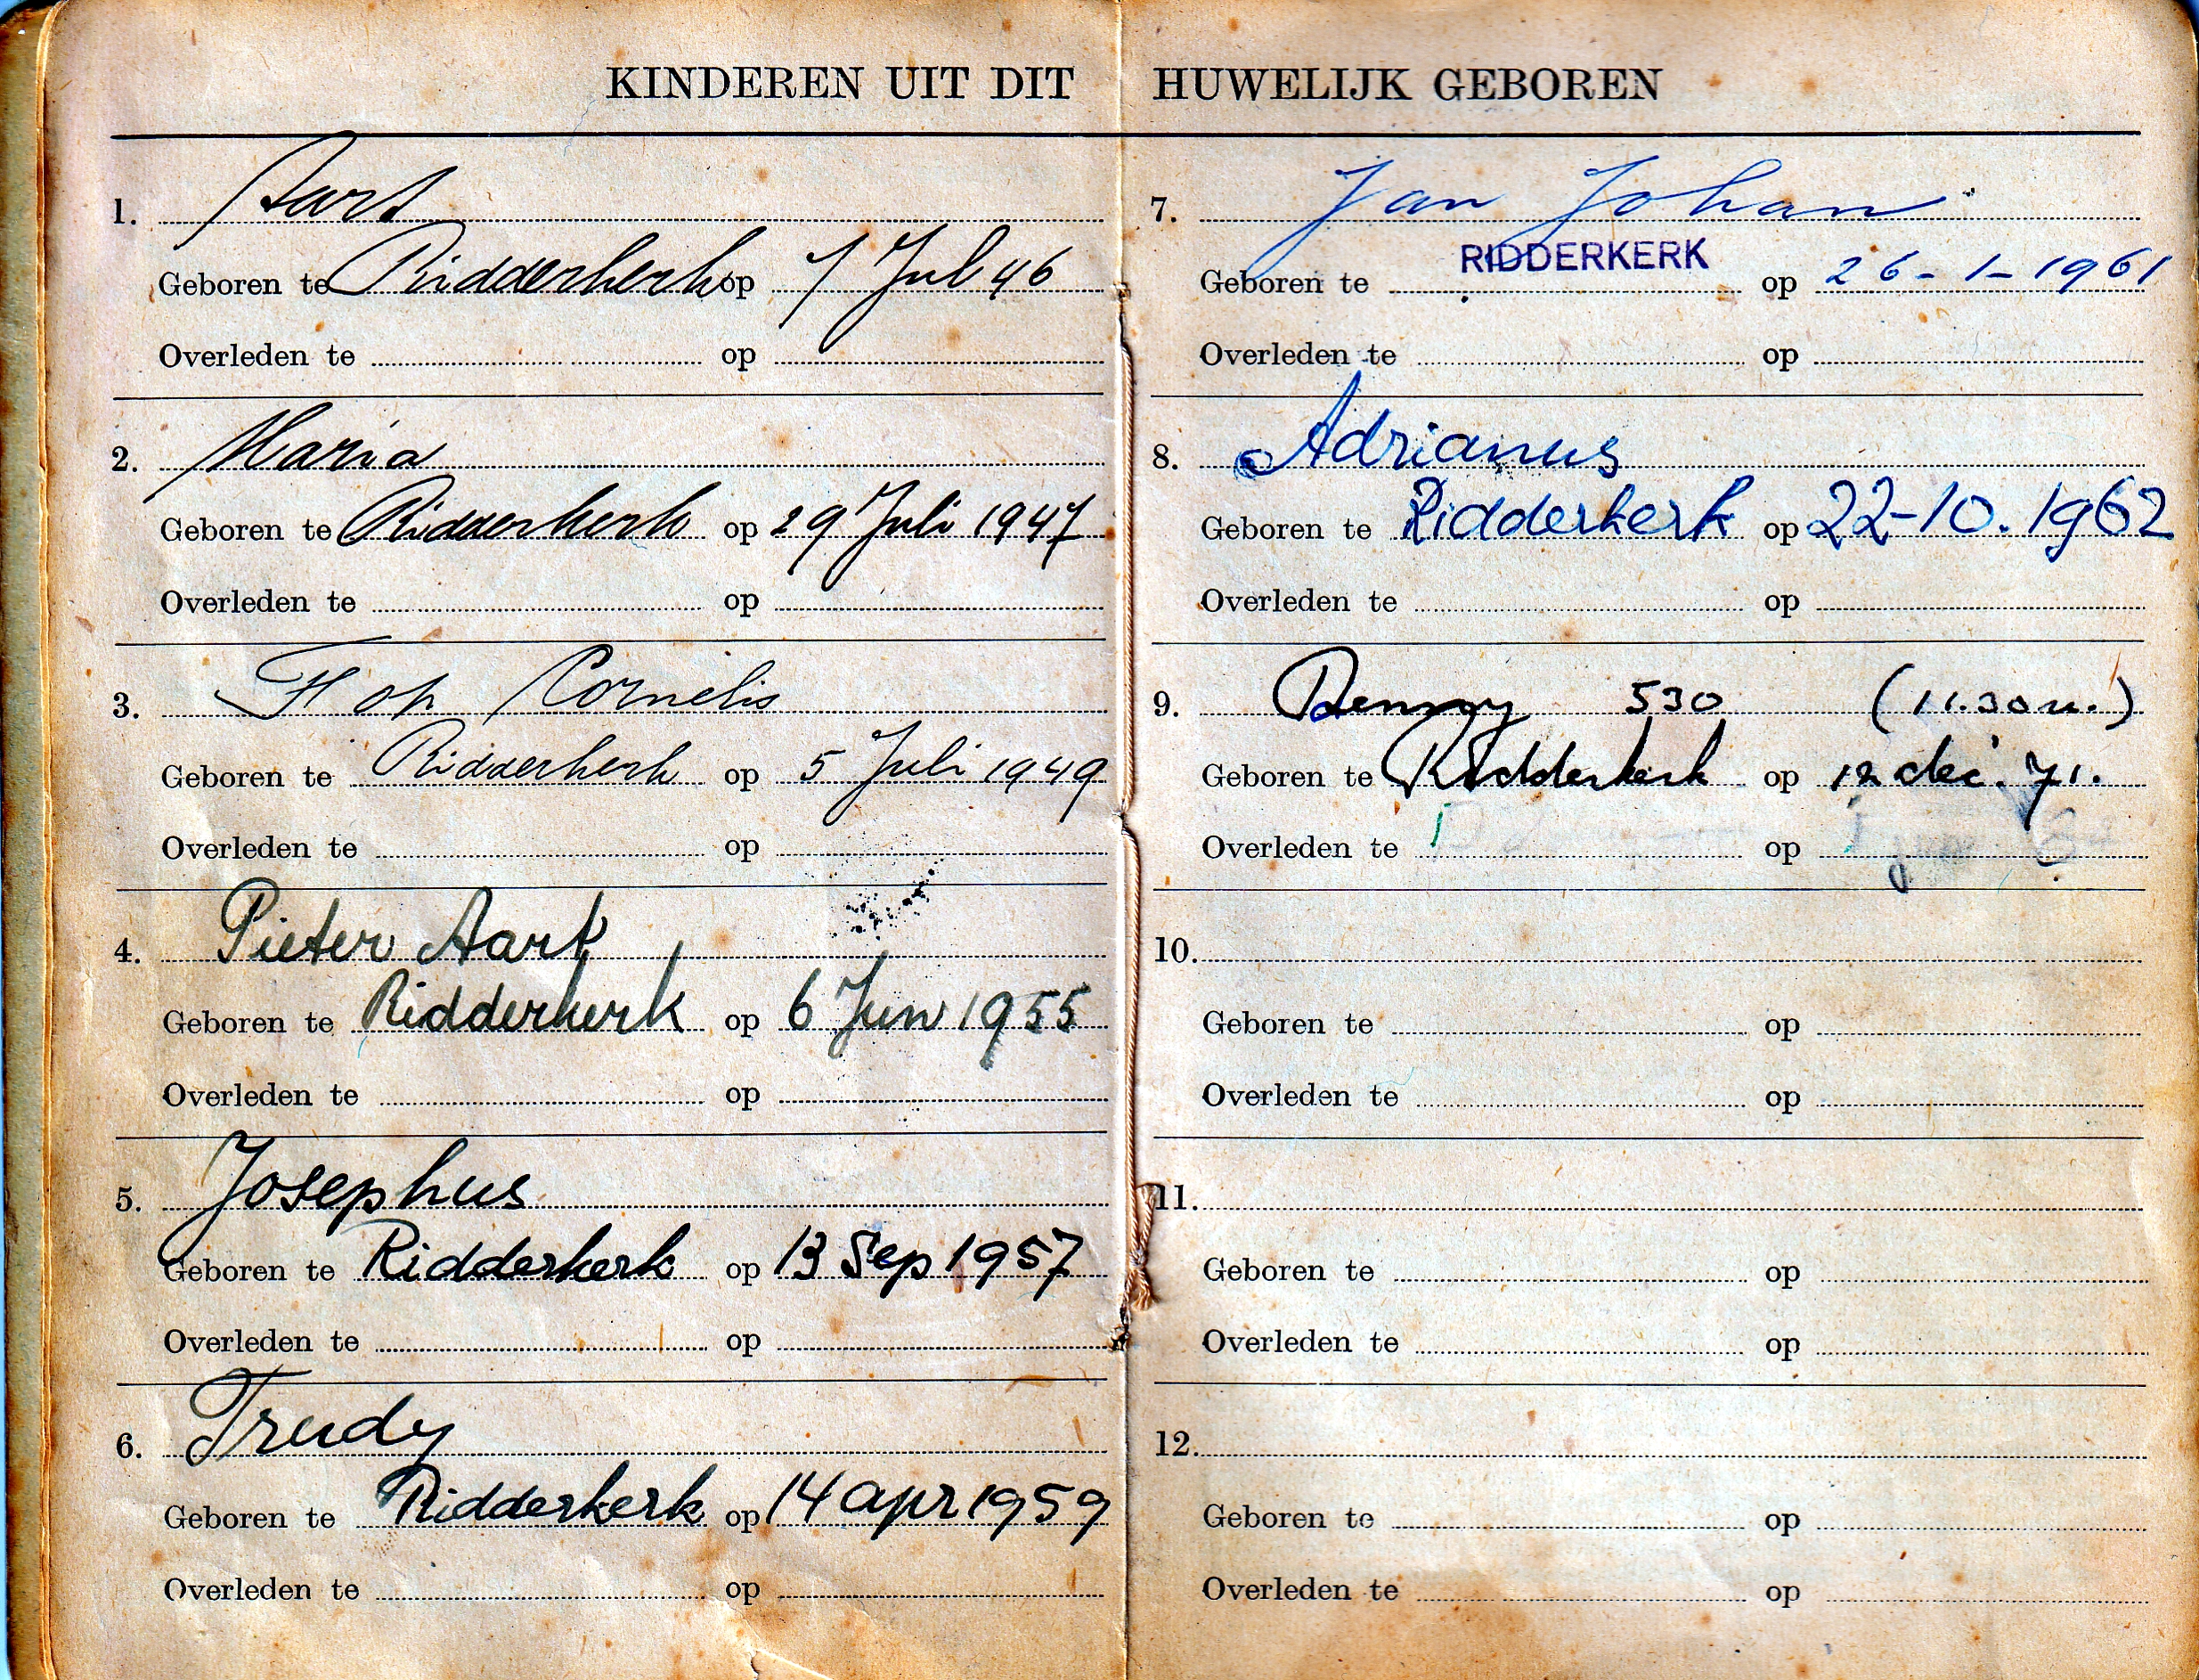 KINDEREN UIT DIT HUWELIJK GEBOREN
1. Aart
Geboren te Ridderkerk op 1 Jul 46
Overleden te op
2. Maria
Geboren te Ridderkerk op 29 Juli 1947
Overleden te op
3. Flop Cornelis
Geboren te Ridderkerk op 5 Juli 1949
Overleden te op
4. Pieter Aart
Geboren te Ridderkerk op 6 Jun 1955
Overleden te op
5. Josephus
Geboren te Ridderkerk op 13 Sep 1957
Overleden te op
6. Trudy
Geboren te Ridderkerk op 14 apr 1959
Overleden te op
7. Jan Johan
Geboren te RIDDERKERK op 26-1-1961
Overleden te op
8. Adrianus
Geboren te Ridderkerk op 22-10.1962
Overleden te op
9. 530 (11.30 u.)
Geboren te Ridderkerk op 12 dec. 71.
Overleden te op
10.
Geboren te op
Overleden te op
11.
Geboren te op
Overleden te op
12.
Geboren te op
Overleden te op